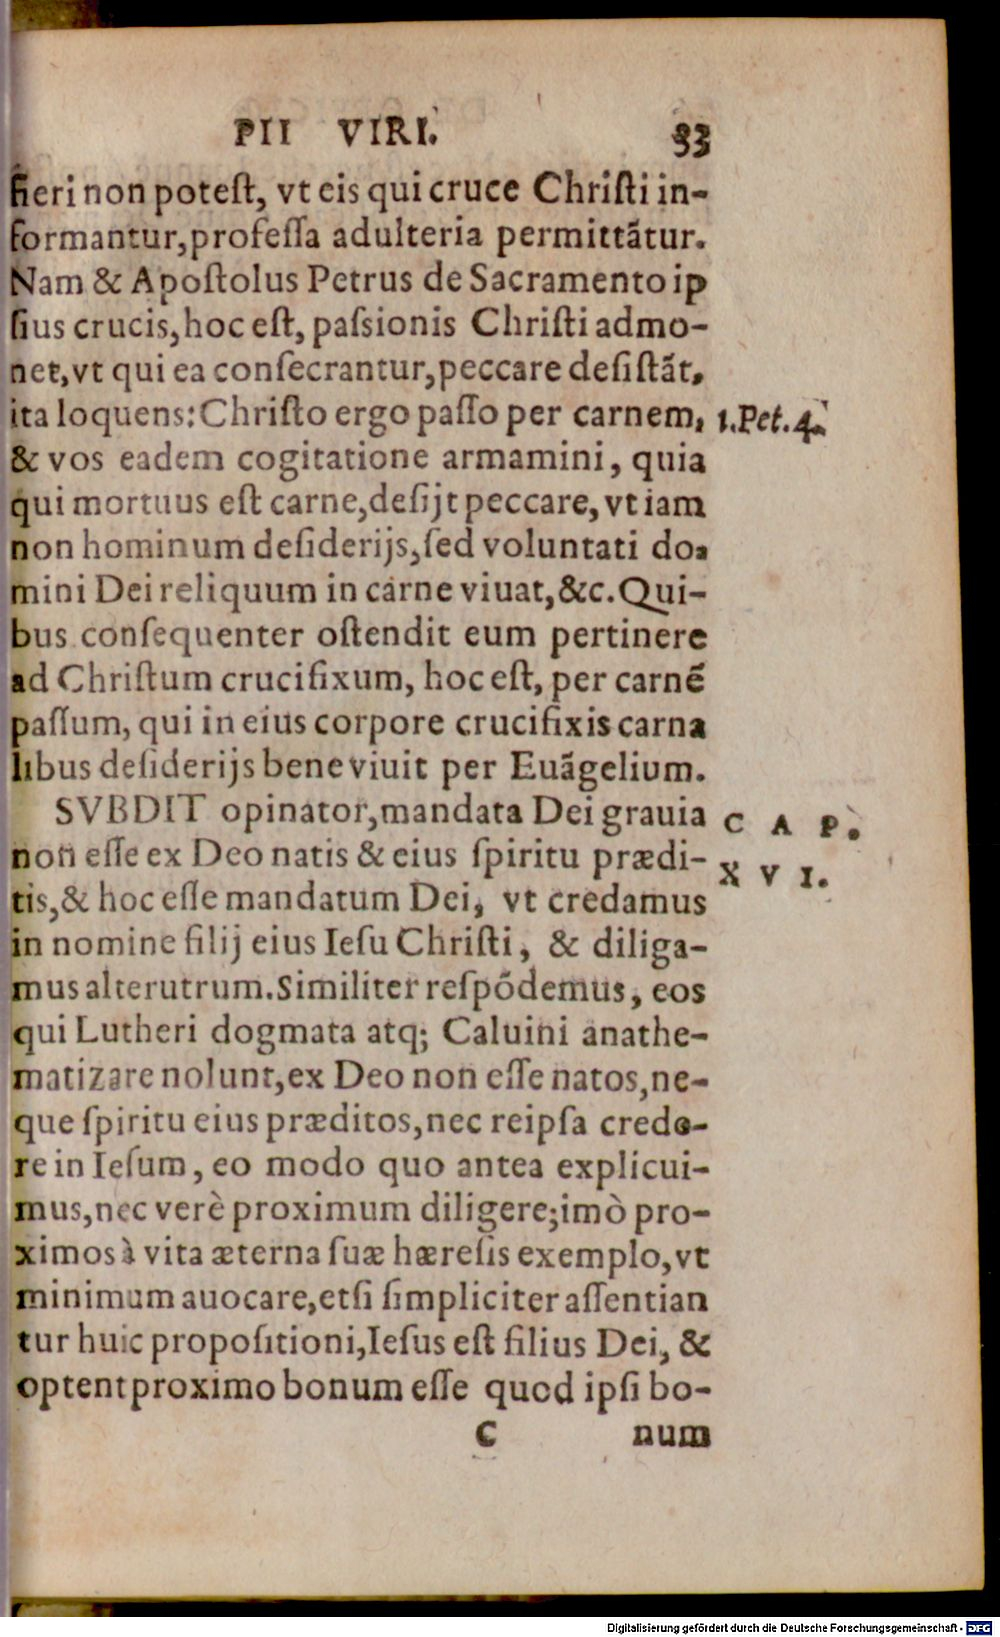 PII VIRI. 33
fieri non poteſt, vt eis qui cruce Chriſti in-
formantur,profeſſa adulteria permittãtur.
Nam & Apoſtolus Petrus de Sacramento ip
ſius crucis,hoc eſt, paſsionis Chriſti admo-
net,vt qui ea conſecrantur,peccare deſiſtãt,
ita loquens:Chriſto ergo paſſo per carnem, 1.Pet.4.
& vos eadem cogitatione armamini, quia
qui mortuus eſt carne,deſijt peccare, vt iam
non hominum deſiderijs,ſed voluntati do-
mini Dei reliquum in carne viuat,&c.Qui-
bus conſequenter oſtendit eum pertinere
ad Chriſtum crucifixum, hoc eſt, per carnẽ
paſſum, qui in eius corpore crucifixis carna
libus deſiderijs bene viuit per Euãgelium.
SVBDIT opinator,mandata Dei grauia C A P.
non eſſe ex Deo natis & eius ſpiritu prædi- X V I.
tis,& hoc eſſe mandatum Dei, vt credamus
in nomine filij eius Ieſu Chriſti, & diliga-
mus alterutrum.Similiter reſpõdemus, eos
qui Lutheri dogmata atq; Caluini anathe-
matizare nolunt,ex Deo non eſſe natos,ne-
que ſpiritu eius præditos,nec reipſa crede-
re in Ieſum, eo modo quo antea explicui-
mus,nec verè proximum diligere;imò pro-
ximos à vita æterna ſuæ hæreſis exemplo,vt
minimum auocare,etſi ſimpliciter aſſentian
tur huic propoſitioni,Ieſus eſt filius Dei, &
optent proximo bonum eſſe quod ipſi bo-
C num
Digitalisierung gefördert durch die Deutsche Forschungsgemeinschaft - DFG